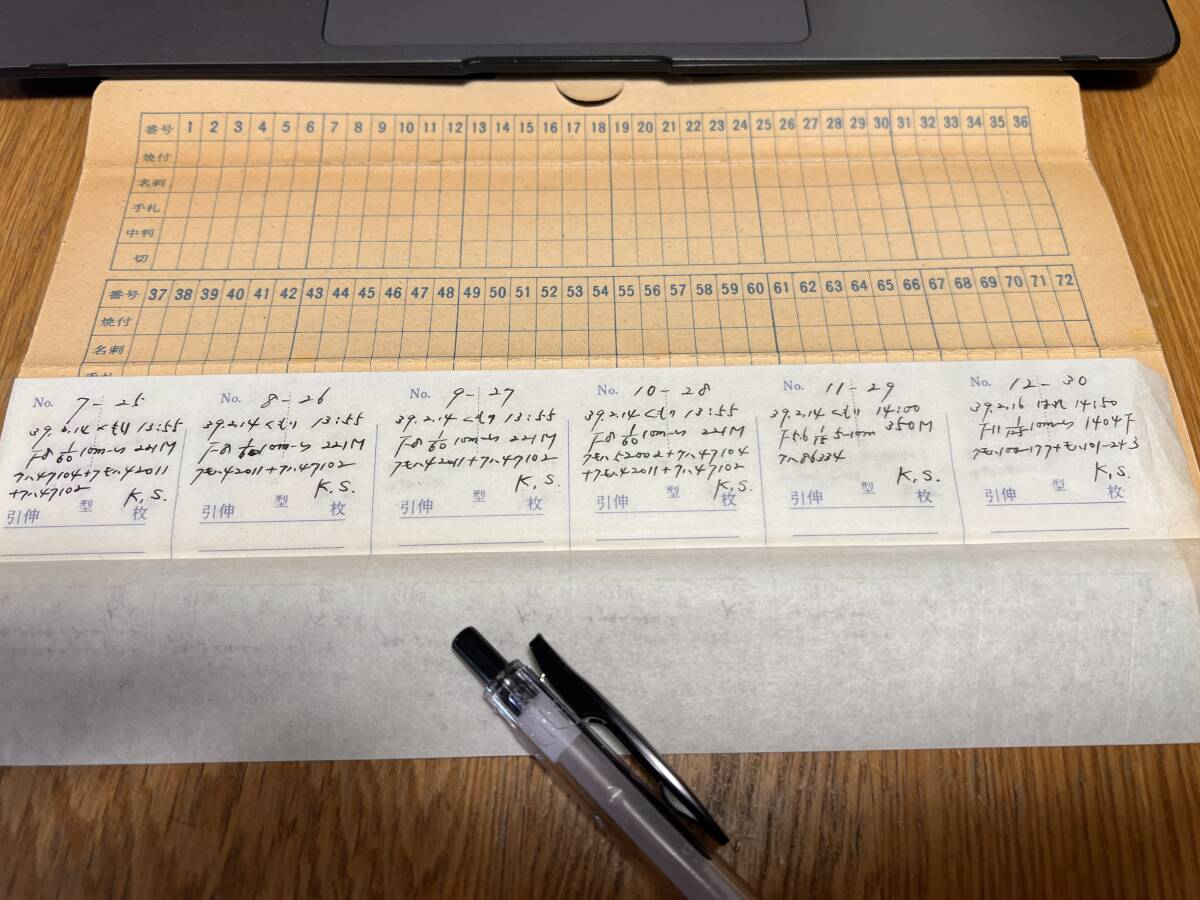 番号 1 2 3 4 5 6 7 8 9 10 11 12 13 14 15 16 17 18 19 20 21 22 23 24 25 26 27 28 29 30 31 32 33 34 35 36
焼付
名刺
手札
中判
切
番号 37 38 39 40 41 42 43 44 45 46 47 48 49 50 51 52 53 54 55 56 57 58 59 60 61 62 63 64 65 66 67 68 69 70 71 72
焼付
名刺
手札
No. 7-25
39.2.14 くもり 13:55
F8 1/60 10m~ 221M
クハ47104+クモハ42011
+クハ47102
K.S.
引伸 型 枚
No. 8-26
39.2.14 くもり 13:55
F8 1/60 10m~ 221M
クモハ42011+クハ47102
K.S.
引伸 型 枚
No. 9-27
39.2.14 くもり 13:55
F8 1/60 10m~ 221M
クモハ42011+クハ47102
K.S.
引伸 型 枚
No. 10-28
39.2.14 くもり 13:55
F8 1/60 10m~ 221M
クモハ52002+クハ47104
+クモハ42011+クハ47102
K.S.
引伸 型 枚
No. 11-29
39.2.14 くもり 14:00
F5.6 5-10m 350M
クハ86334
K.S.
引伸 型 枚
No. 12-30
39.2.16 はれ 14:50
F11 10m~ 1404T
K.S.
引伸 型 枚